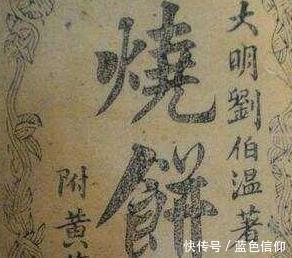 大明劉伯温著
燒餅
附黃
快传号/蓝色信仰